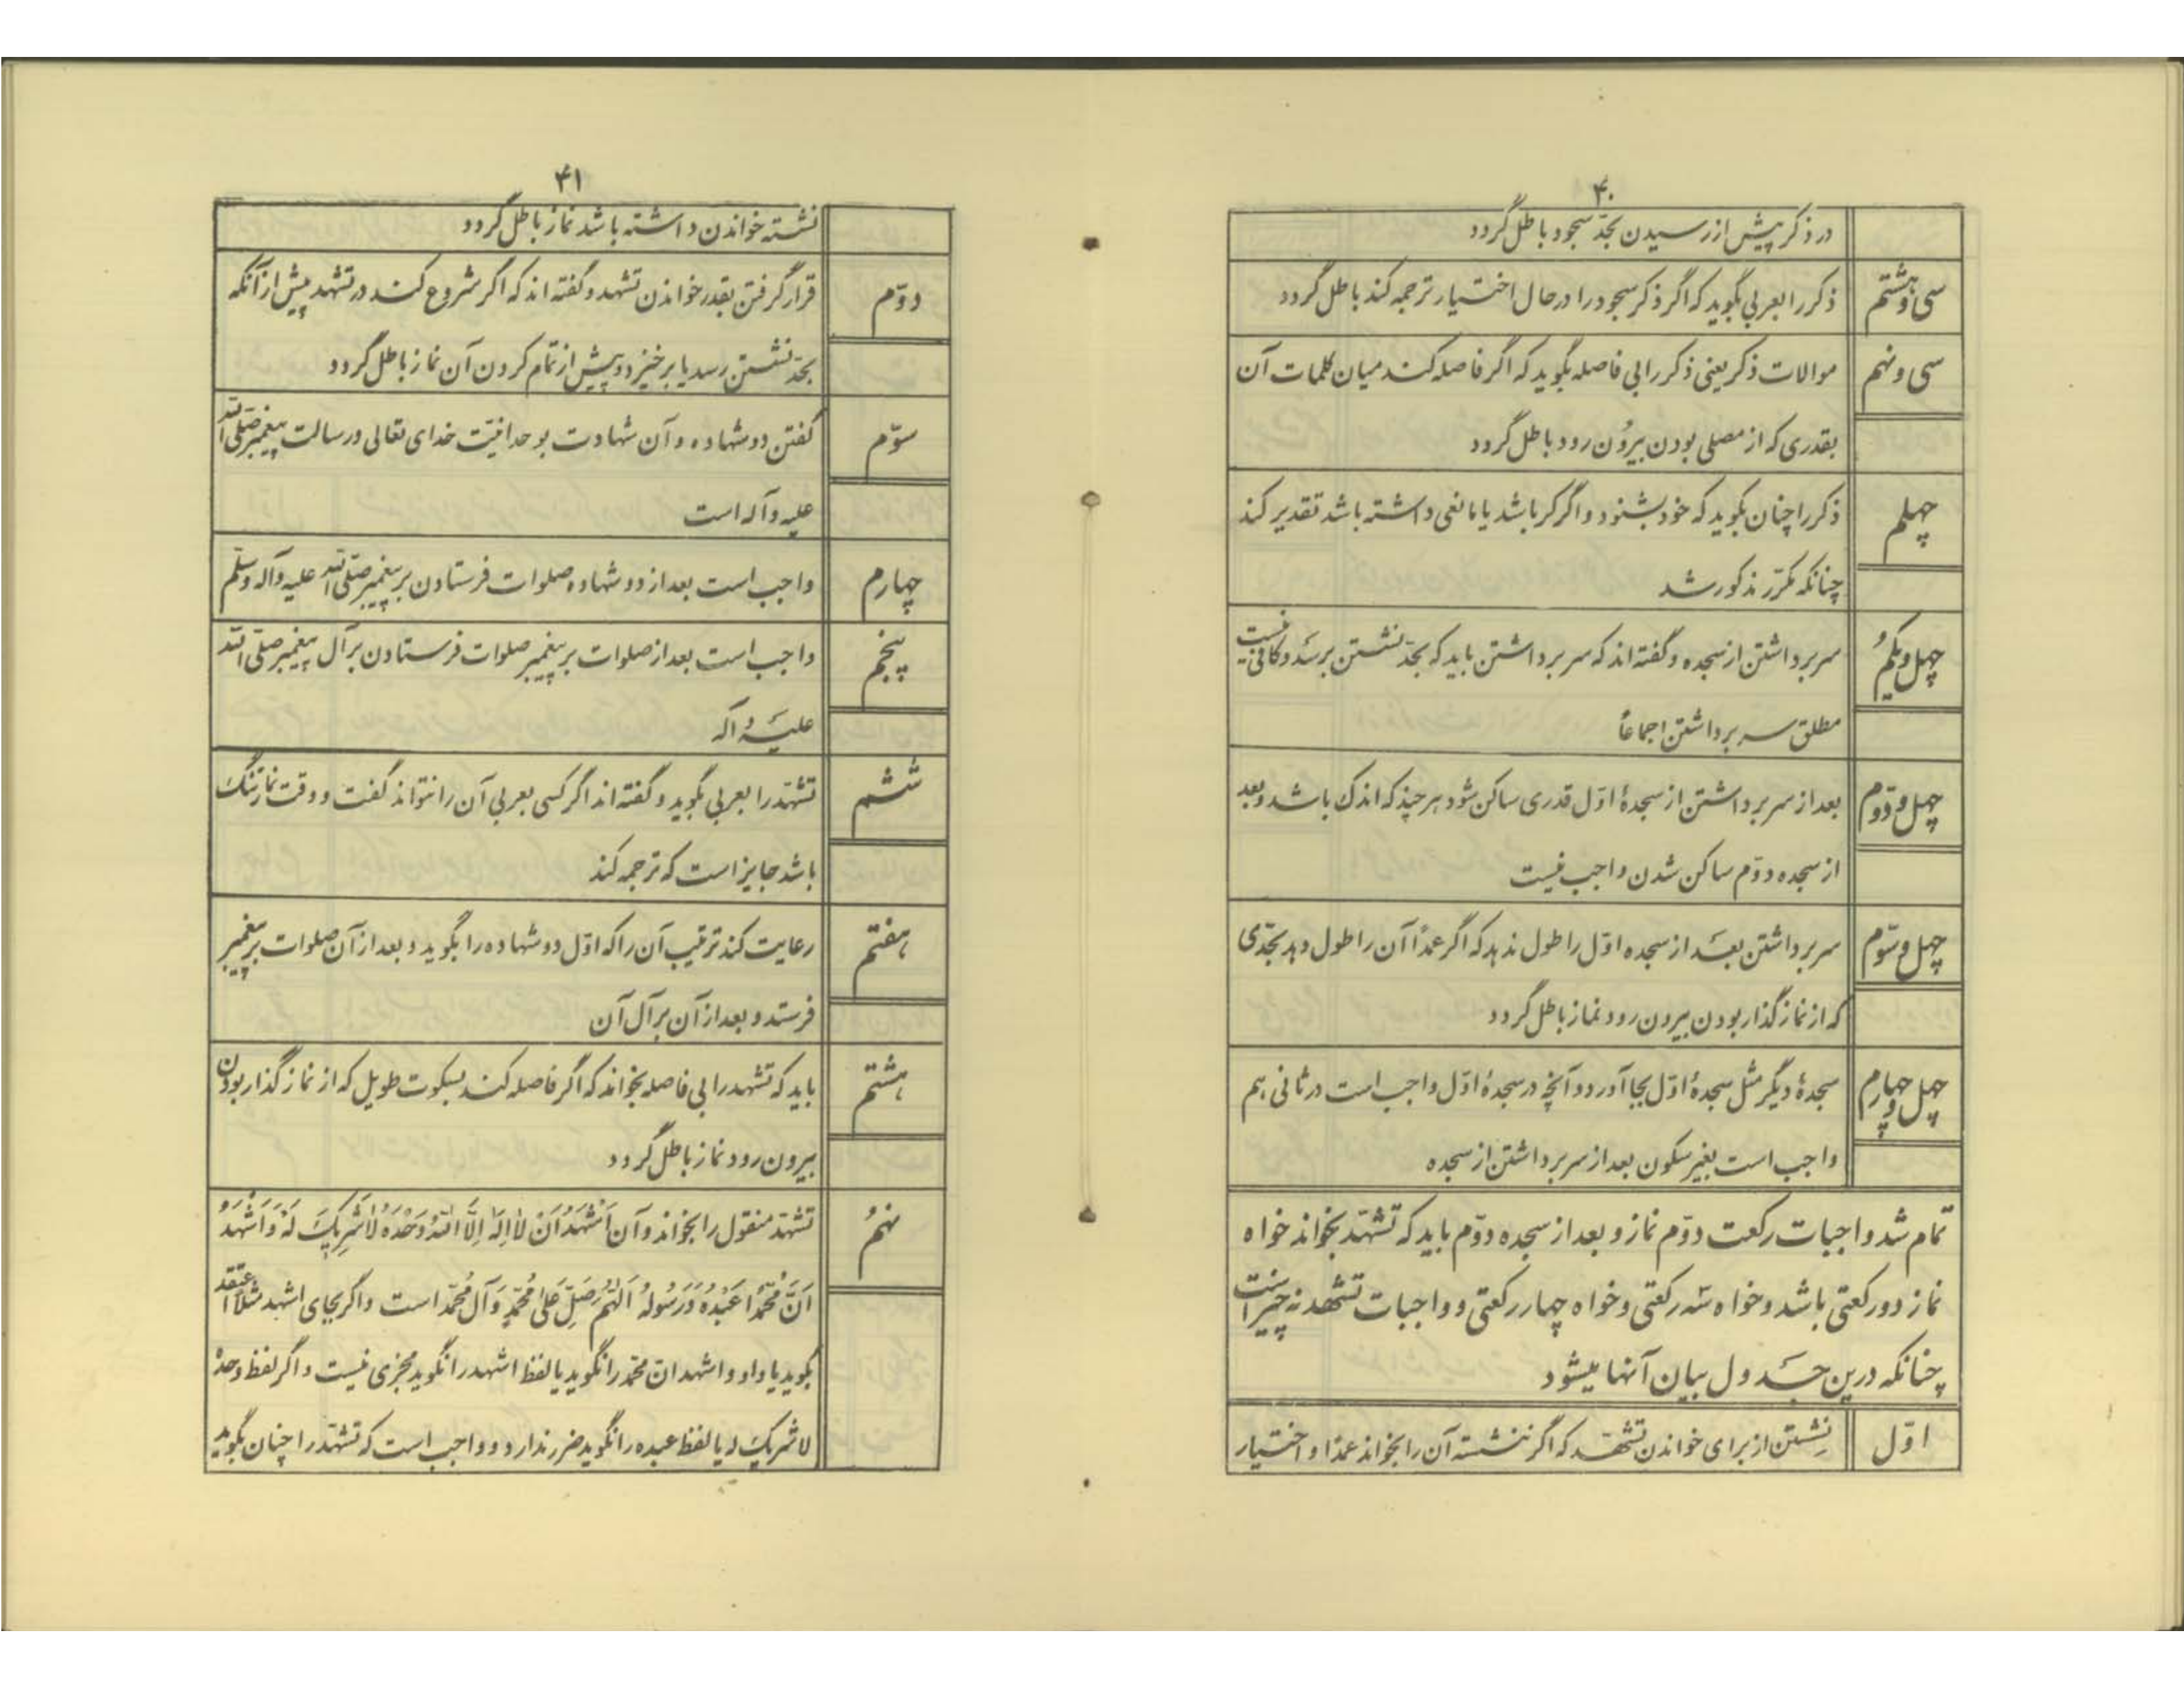 ۴۰
در ذکر پیش از رسیدن بحدّ سجود باطل گردد
سی و هشتم ذکر را بعربی بگوید که اگر ذکر سجود را در حال اختیار ترجمه کند باطل گردد
سی و نهم موالات ذکر یعنی ذکر را بی فاصله بگوید که اگر فاصله کند میان کلمات آن
بقدری که از مصلی بودن بیرون رود باطل گردد
چهلم ذکر را چنان بگوید که خود بشنود و اگر کر باشد یا مانعی داشته باشد تقدیر کند
چنانکه مکرّر مذکور شد
چهل و یکم سر برداشتن از سجده و گفته اند که سر برداشتن باید که بحدّ نشستن برسد و کافی نیست
مطلق سر برداشتن اجماعاً
چهل و دوّم بعد از سر برداشتن از سجدهٔ اوّل قدری ساکن شود هر چند که اندک باشد و بعد
از سجده دوّم ساکن شدن واجب نیست
چهل و سوّم سر برداشتن بعد از سجده اوّل را طول ندهد که اگر عمدًا آن را طول دهد بحدّی
که از نماز گذار بودن بیرون رود نماز باطل گردد
چهل و چهارم سجدهٔ دیگر مثل سجدهٔ اوّل بجا آورد و آنچه در سجدهٔ اوّل واجب است در ثانی هم
واجب است بغیر سکون بعد از سر برداشتن از سجده
تمام شد واجبات رکعت دوّم نماز و بعد از سجده دوّم باید که تشهّد بخواند خواه
نماز دو رکعتی باشد و خواه سه رکعتی و خواه چهار رکعتی و واجبات تشهد نه چیز است
چنانکه درین جدول بیان آنها میشود
اوّل نشستن از برای خواندن تشهّد که اگر ننشسته آن را بخواند عمدا و اختیار
۴۱
نشسته خواندن داشته باشد نماز باطل گردد
دوّم قرار گرفتن بقدر خواندن تشهد و گفته اند که اگر شروع کند در تشهد پیش از آنکه
بحدّ نشستن رسد یا برخیزد پیش از تمام کردن آن نماز باطل گردد
سوّم گفتن دو شهاده و آن شهادت بوحدانیّت خدای تعالی و رسالت پیغمبر صلّی الله
علیه و آله است
چهارم واجب است بعد از دو شهاده صلوات فرستادن بر پیغمبر صلّی الله علیه و آله و سلّم
پنجم واجب است بعد از صلوات بر پیغمبر صلوات فرستادن بر آل پیغمبر صلّی الله
علیه و آله
ششم تشهّد را بعربی بگوید و گفته اند اگر کسی بعربی آن را نتواند گفت و وقت نماز تنگ
باشد جایز است که ترجمه کند
هفتم رعایت کند ترتیب آن را که اوّل دو شهاده را بگوید و بعد از آن صلوات بر پیغمبر
فرستد و بعد از آن بر آل آن
هشتم باید که تشهد را بی فاصله بخواند که اگر فاصله کند بسکوت طویل که از نماز گذار بودن
بیرون رود نماز باطل گردد
نهم تشهّد منقول را بخواند و آن اَشْهَدُ اَنْ لا اِلهَ اِلَّا اللهُ وَحْدَهُ لا شَرِیکَ لَهُ وَ اَشْهَدُ
اَنَّ مُحَمَّدًا عَبْدُهُ وَ رَسُولُهُ اَللّهُمَّ صَلِّ عَلی مُحَمَّدٍ وَ آلِ مُحَمَّد است و اگر بجای اشهد مثلا اعتقد
بگوید یا واو و اشهد انّ محمّد را نگوید یا لفظ اشهد را نگوید مجزی نیست و اگر لفظ وحده
لا شریک له یا لفظ عبده را نگوید ضرر ندارد و واجب است که تشهّد را چنان بگوید